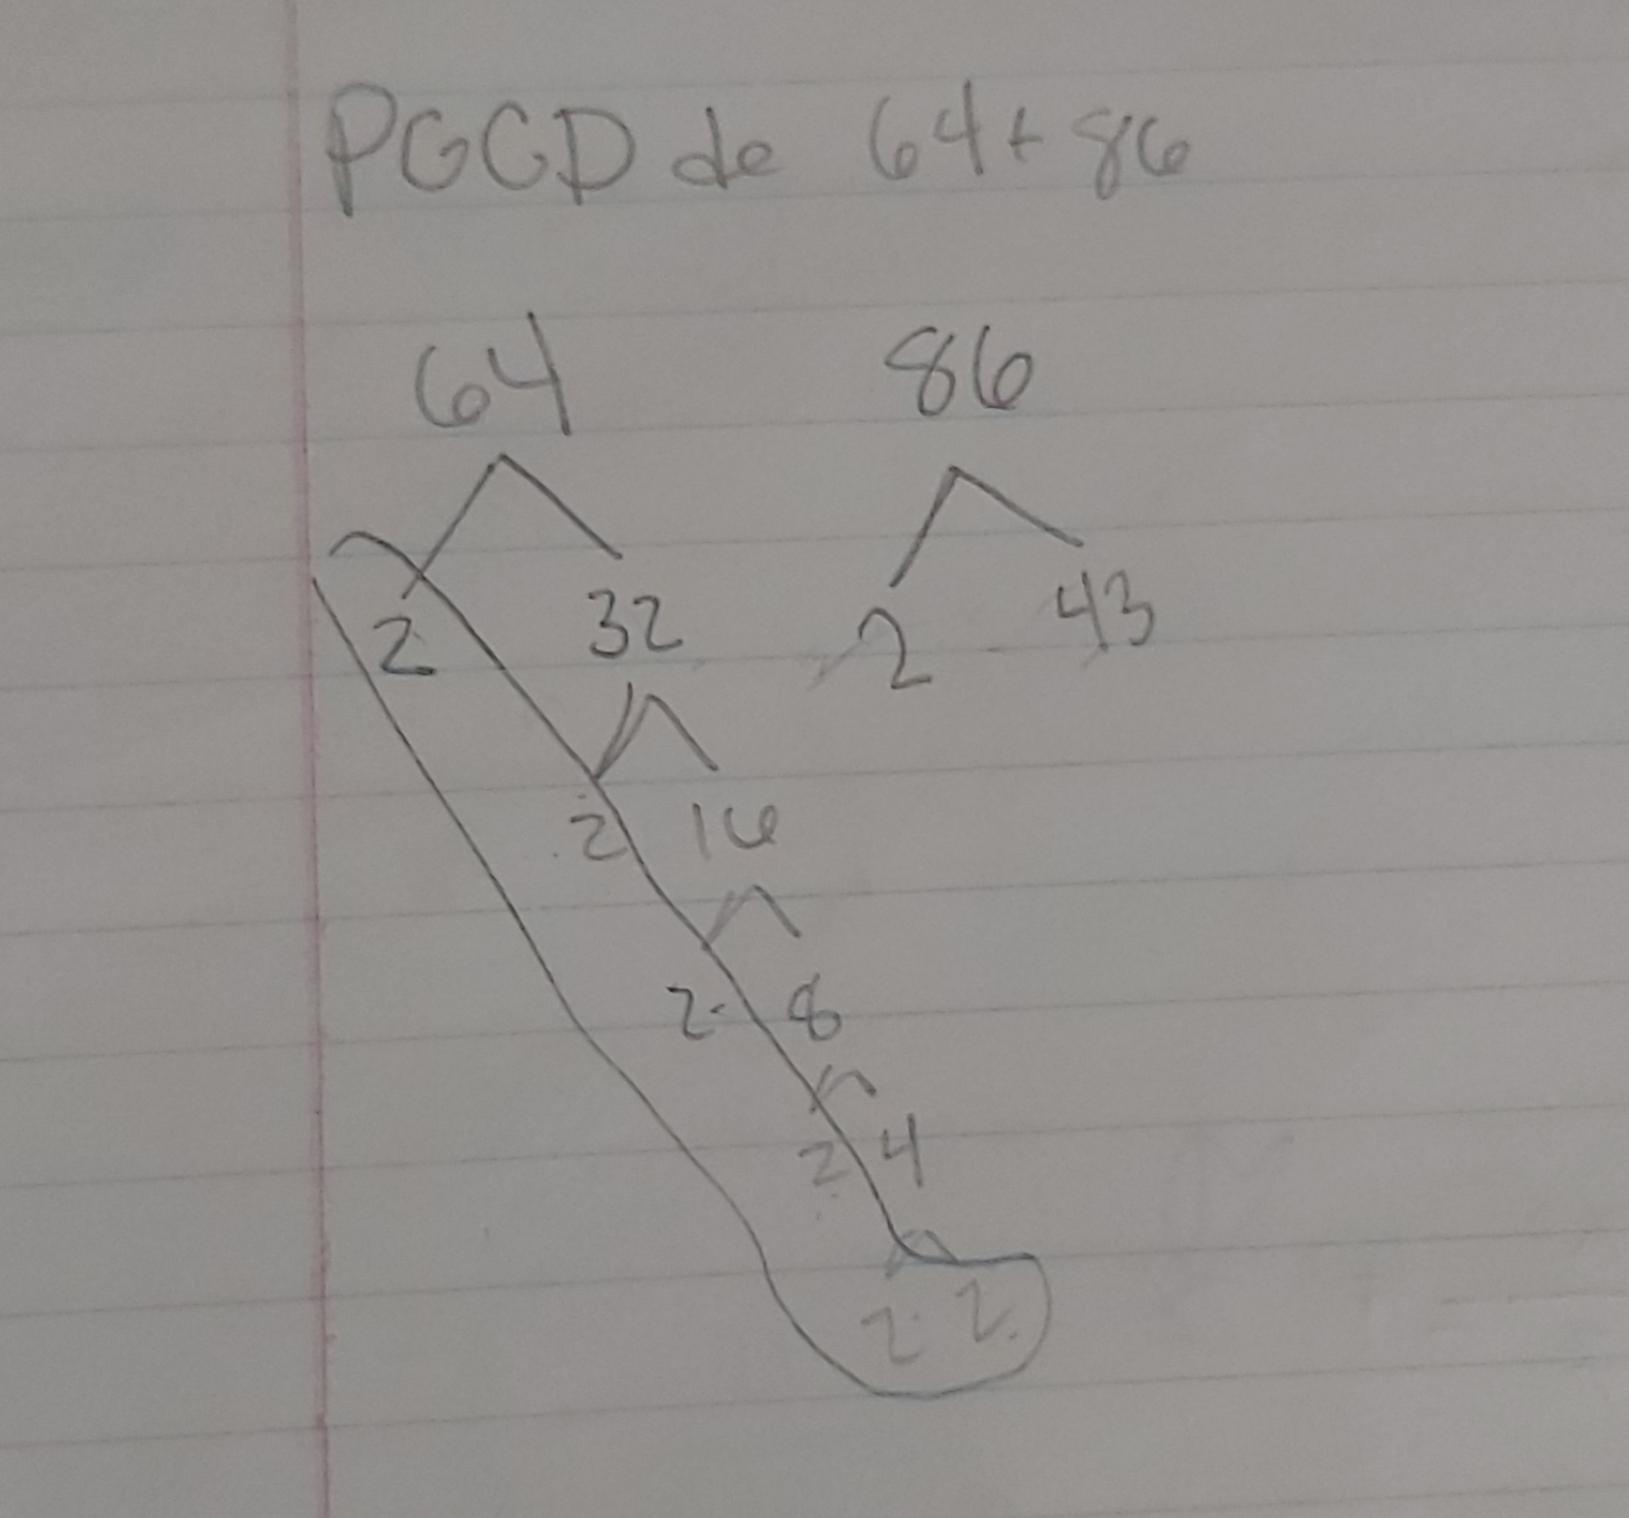 PGCD de 64 + 86
64 86
2 32 2 43
2 16
2 8
2 4
2 2